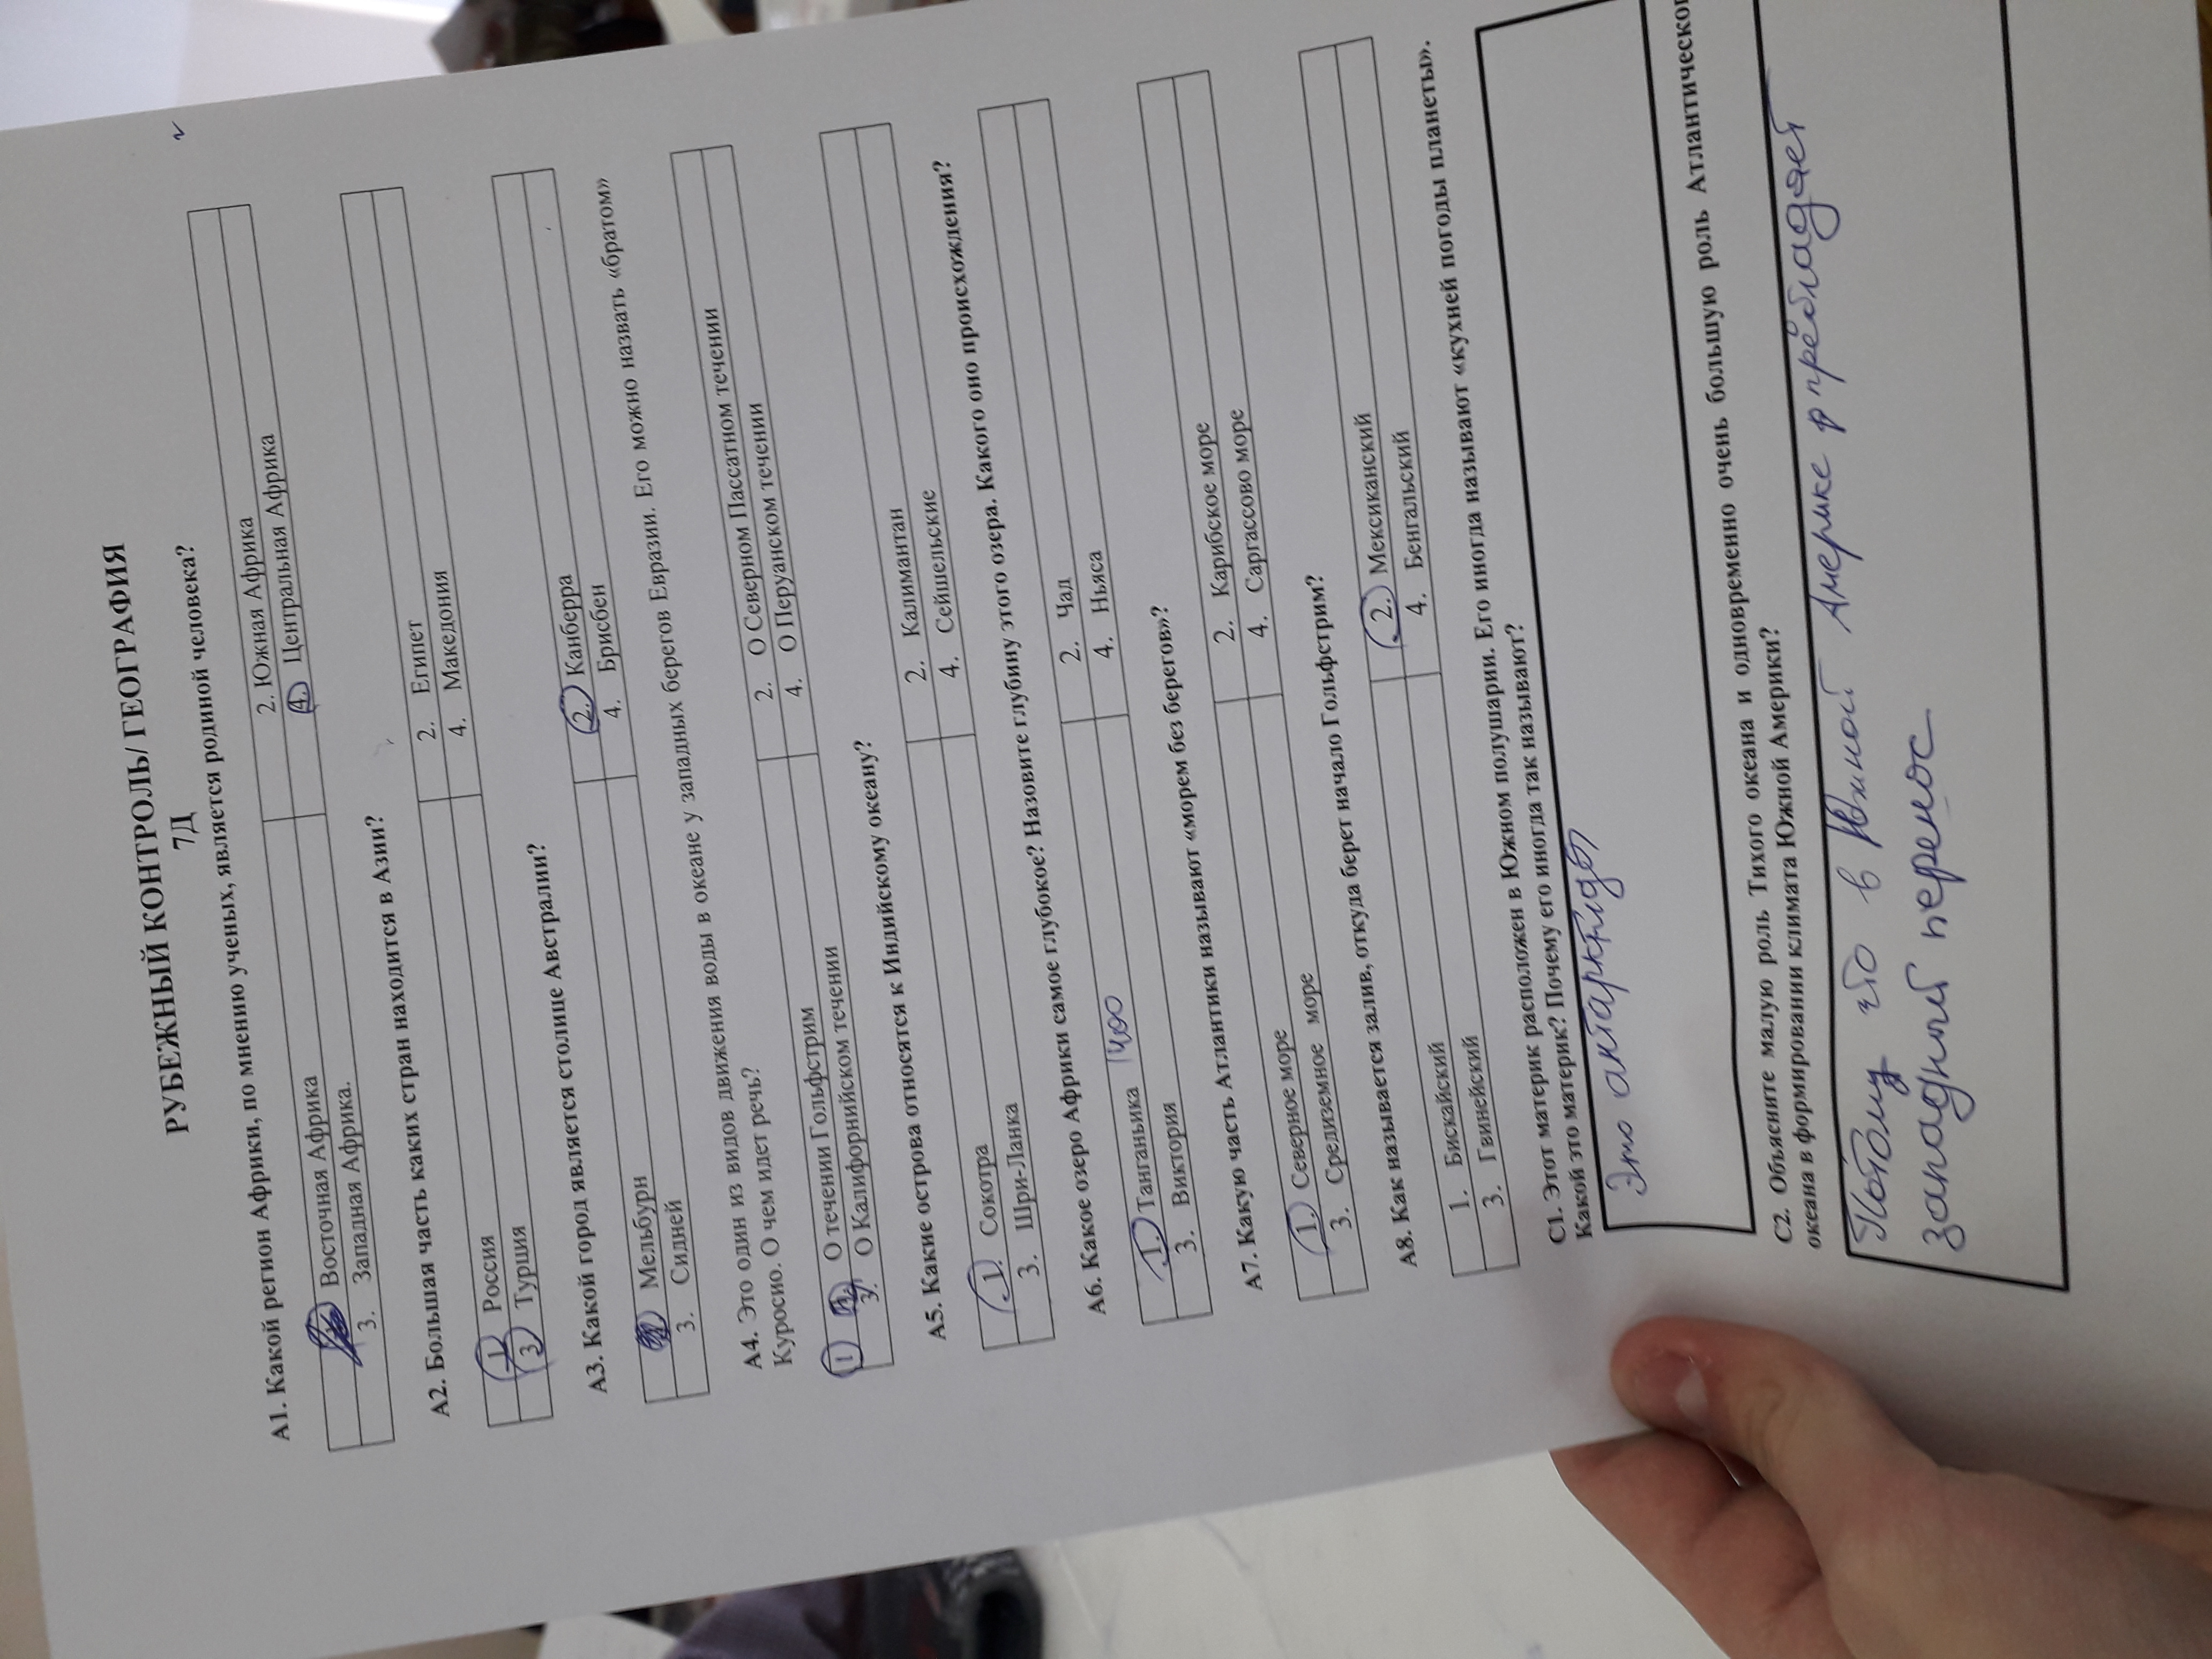 РУБЕЖНЫЙ КОНТРОЛЬ/ ГЕОГРАФИЯ
7Д
А1. Какой регион Африки, по мнению ученых, является родиной человека?
Восточная Африка 2. Южная Африка
3. Западная Африка. 4. Центральная Африка
А2. Большая часть каких стран находится в Азии?
1 Россия 2. Египет
3 Турция 4. Македония
А3. Какой город является столице Австралии?
Мельбурн 2. Канберра
3. Сидней 4. Брисбен
А4. Это один из видов движения воды в океане у западных берегов Евразии. Его можно назвать «братом»
Куросио. О чем идет речь?
1 О течении Гольфстрим 2. О Северном Пассатном течении
3. О Калифорнийском течении 4. О Перуанском течении
А5. Какие острова относятся к Индийскому океану?
1. Сокотра 2. Калимантан
3. Шри-Ланка 4. Сейшельские
А6. Какое озеро Африки самое глубокое? Назовите глубину этого озера. Какого оно происхождения?
1. Танганьика 1400 2. Чад
3. Виктория 4. Ньяса
А7. Какую часть Атлантики называют «морем без берегов»?
1. Северное море 2. Карибское море
3. Средиземное море 4. Саргассово море
А8. Как называется залив, откуда берет начало Гольфстрим?
1. Бискайский 2. Мексиканский
3. Гвинейский 4. Бенгальский
С1. Этот материк расположен в Южном полушарии. Его иногда называют «кухней погоды планеты».
Какой это материк? Почему его иногда так называют?
Это антарктида
С2. Объясните малую роль Тихого океана и одновременно очень большую роль Атлантическог
океана в формировании климата Южной Америки?
Потому что в Южной Америке преобладает
западный перенос